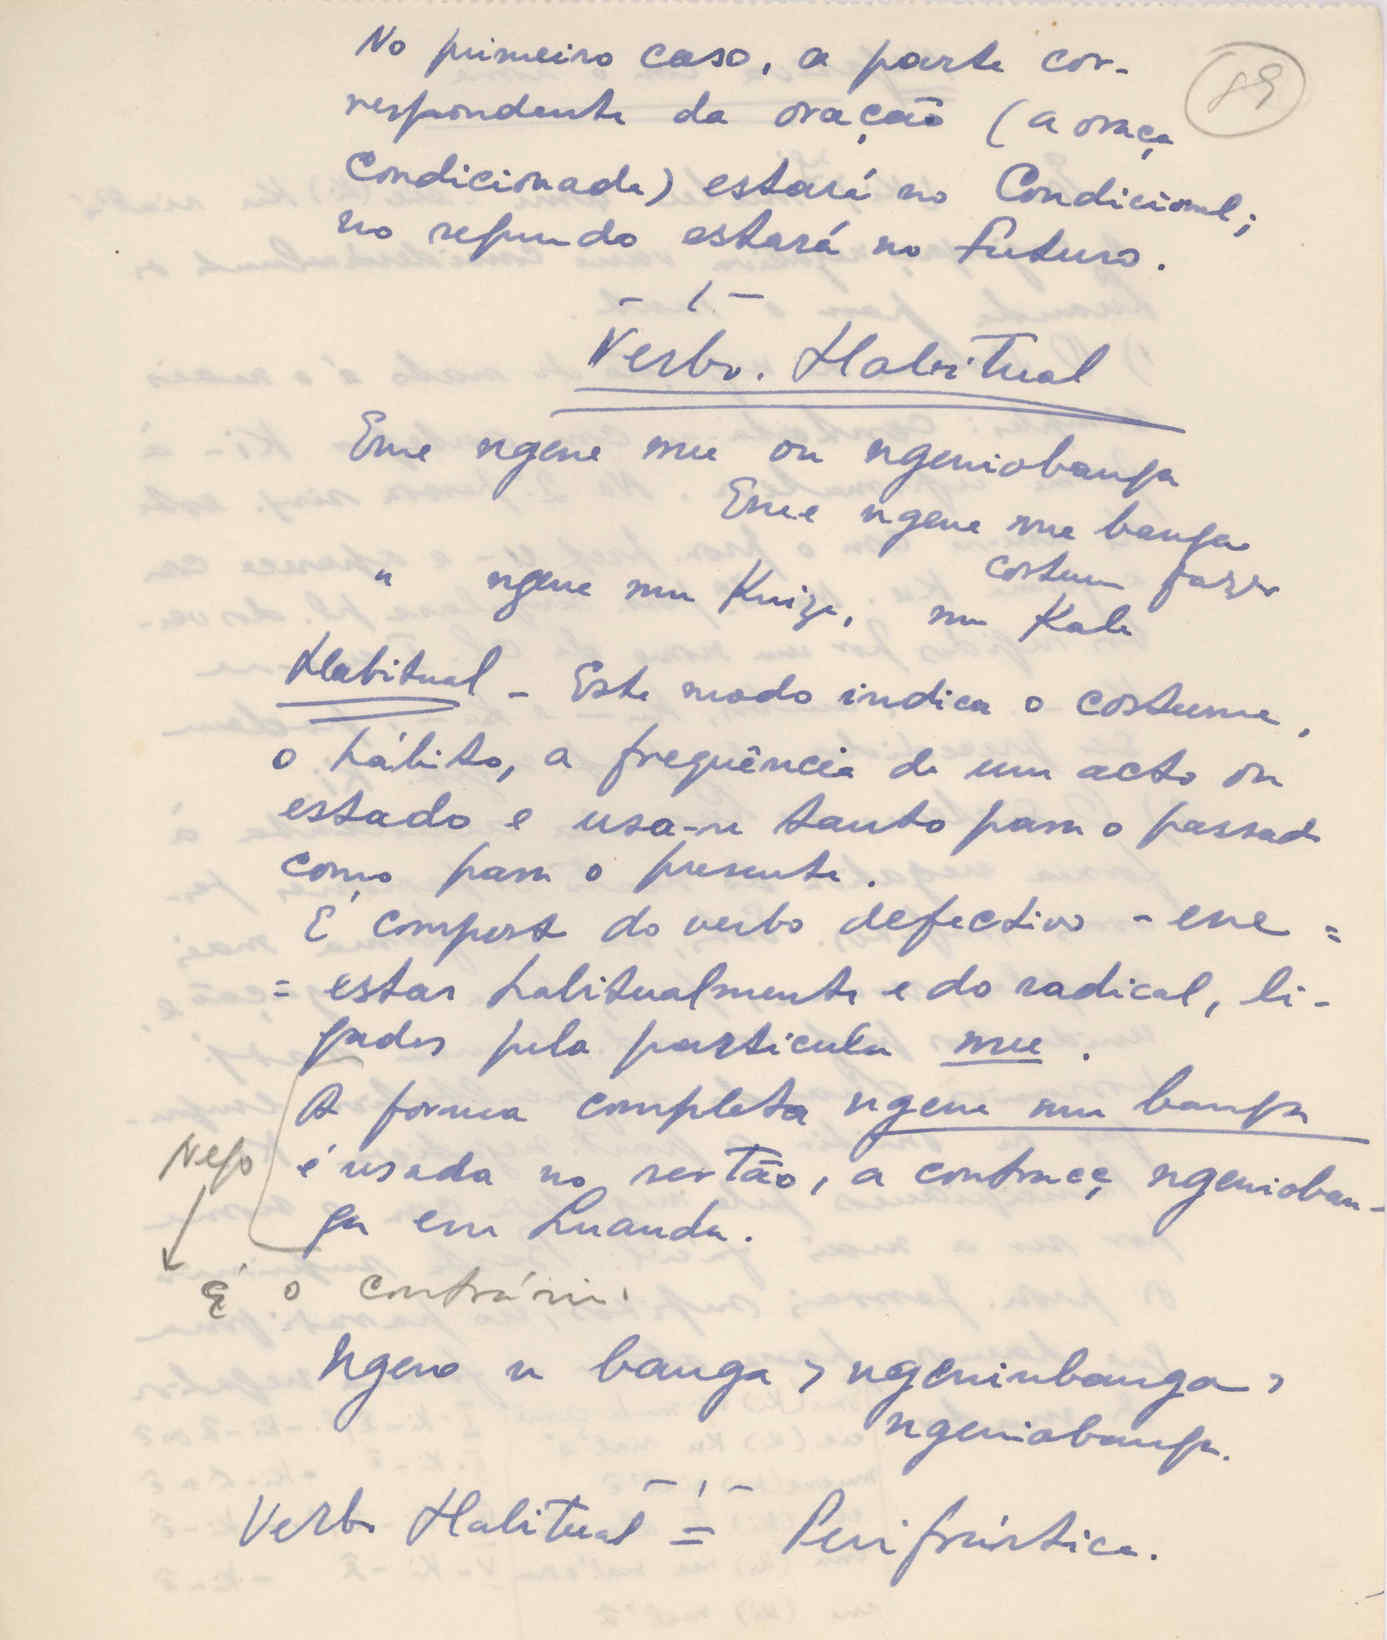 89
No primeiro caso, a parte cor-
respondente da oração (a oraçã
Condicionada) estará no Condicional;
no segundo estará no Futuro.
- / -
Verbo. Habitual
Eme ngene mu ou ngeniobanga
Eme ngene mu banga
costumo fazer
" ngene mu Kuiza, mu Kala
Habitual - Este modo indica o costume,
o hábito, a frequência de um acto ou
estado e usa-se tanto para o passado
como para o presente.
É composto do verbo defectivo - ene =
= estar habitualmente e do radical, li-
gados pela particula mu.
A forma completa ngene mu banga
Nego é usada no sertão, a contracç ngenioban-
ga em Luanda.
É o contrário.
Ngene u banga > ngeniubanga >
ngeniobanga.
- / -
Verbo Habitual = Perifrástica.